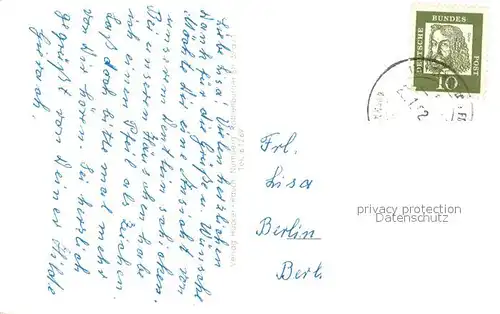 Liebe Lisa! Vielen herzlichen
Dank für die Grüße u. Wünsche
Möchte dir eine Ansicht von
unserem Dentlein schicken.
Bei unserem Häuschen habe
ich einen Pfeil als Zeichen.
Laß doch bitte mal mehr
von dir hören. Sei herzlich
gegrüßt von Deiner Hilde
Verlag
Tel.
DEUTSCHE
BUNDES
POST
10
Frl.
Lisa
Berlin
Berl
privacy protection
Datenschutz